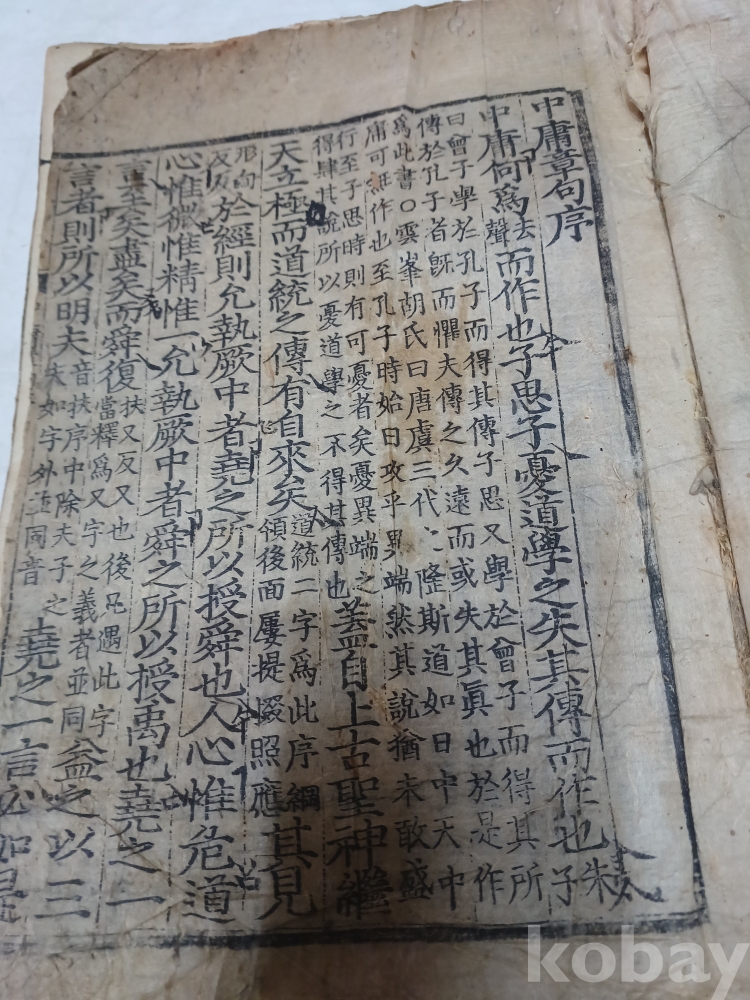 中庸章句序
中庸何爲去聲而作也子思子憂道學之失其傳而作也朱子
曰曾子學於孔子而得其傳子思又學於曾子而得其所
傳於孔子者旣而懼夫傳之久遠而或失其眞也於是作
爲此書○雲峯胡氏曰唐虞三代〻隆斯道如日中天中
庸可無作也至孔子時始曰攻乎異端然其說猶未敢盛
行至子思時則有可憂者矣憂異端之
得肆其說所以憂道學之不得其傳也
蓋自上古聖神繼
天立極而道統之傳有自來矣
道統二字爲此序綱
領後面屢提掇照應
其見
形甸
反
於經則允執厥中者堯之所以授舜也人心惟危道
心惟微惟精惟一允執厥中者舜之所以授禹也堯之一
言至矣盡矣而舜復
扶又反又也後凡遇此字
當釋爲又字之義者並同
益之以三
言者則所以明夫
音扶序中除夫子之
夫如字外並同音
堯之一言必如是
kobay